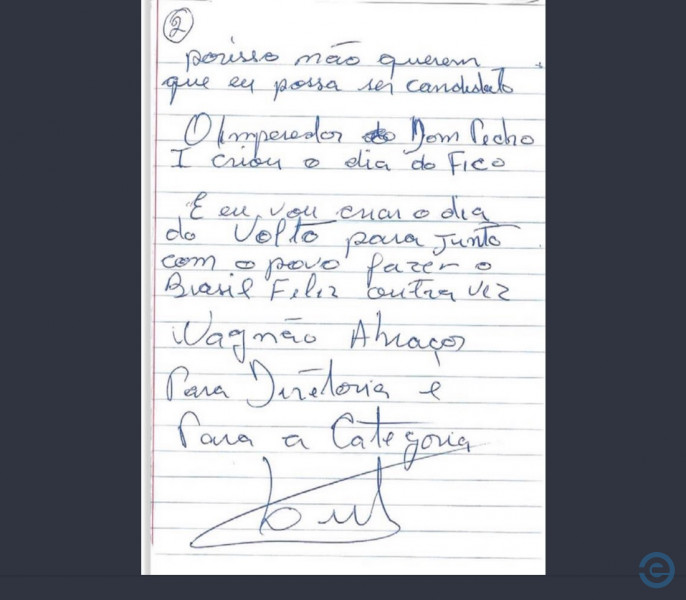 2
porisso não querem
que eu possa ser candidato
O Imperador do Dom Pedro
I criou o dia do Fico
E eu vou criar o dia
do Volto para junto
com o povo fazer o
Brasil Feliz outra vez
Wagnão Abraços
Para Diretoria e
Para a Categoria